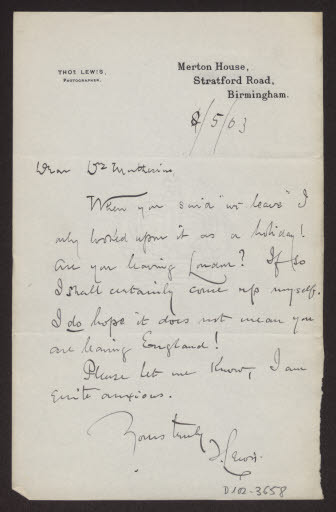 THOS. LEWIS,
PHOTOGRAPHER.
Merton House,
Stratford Road,
Birmingham.
8/5/03
Dear Dr Matthews,
When you said "we leave" I
only looked upon it as a holiday!
Are you leaving London? If so
I shall certainly come up myself.
I do hope it does not mean you
are leaving England!
Please let me know, I am
quite anxious.
Yours truly
T. Lewis.
D102-3658